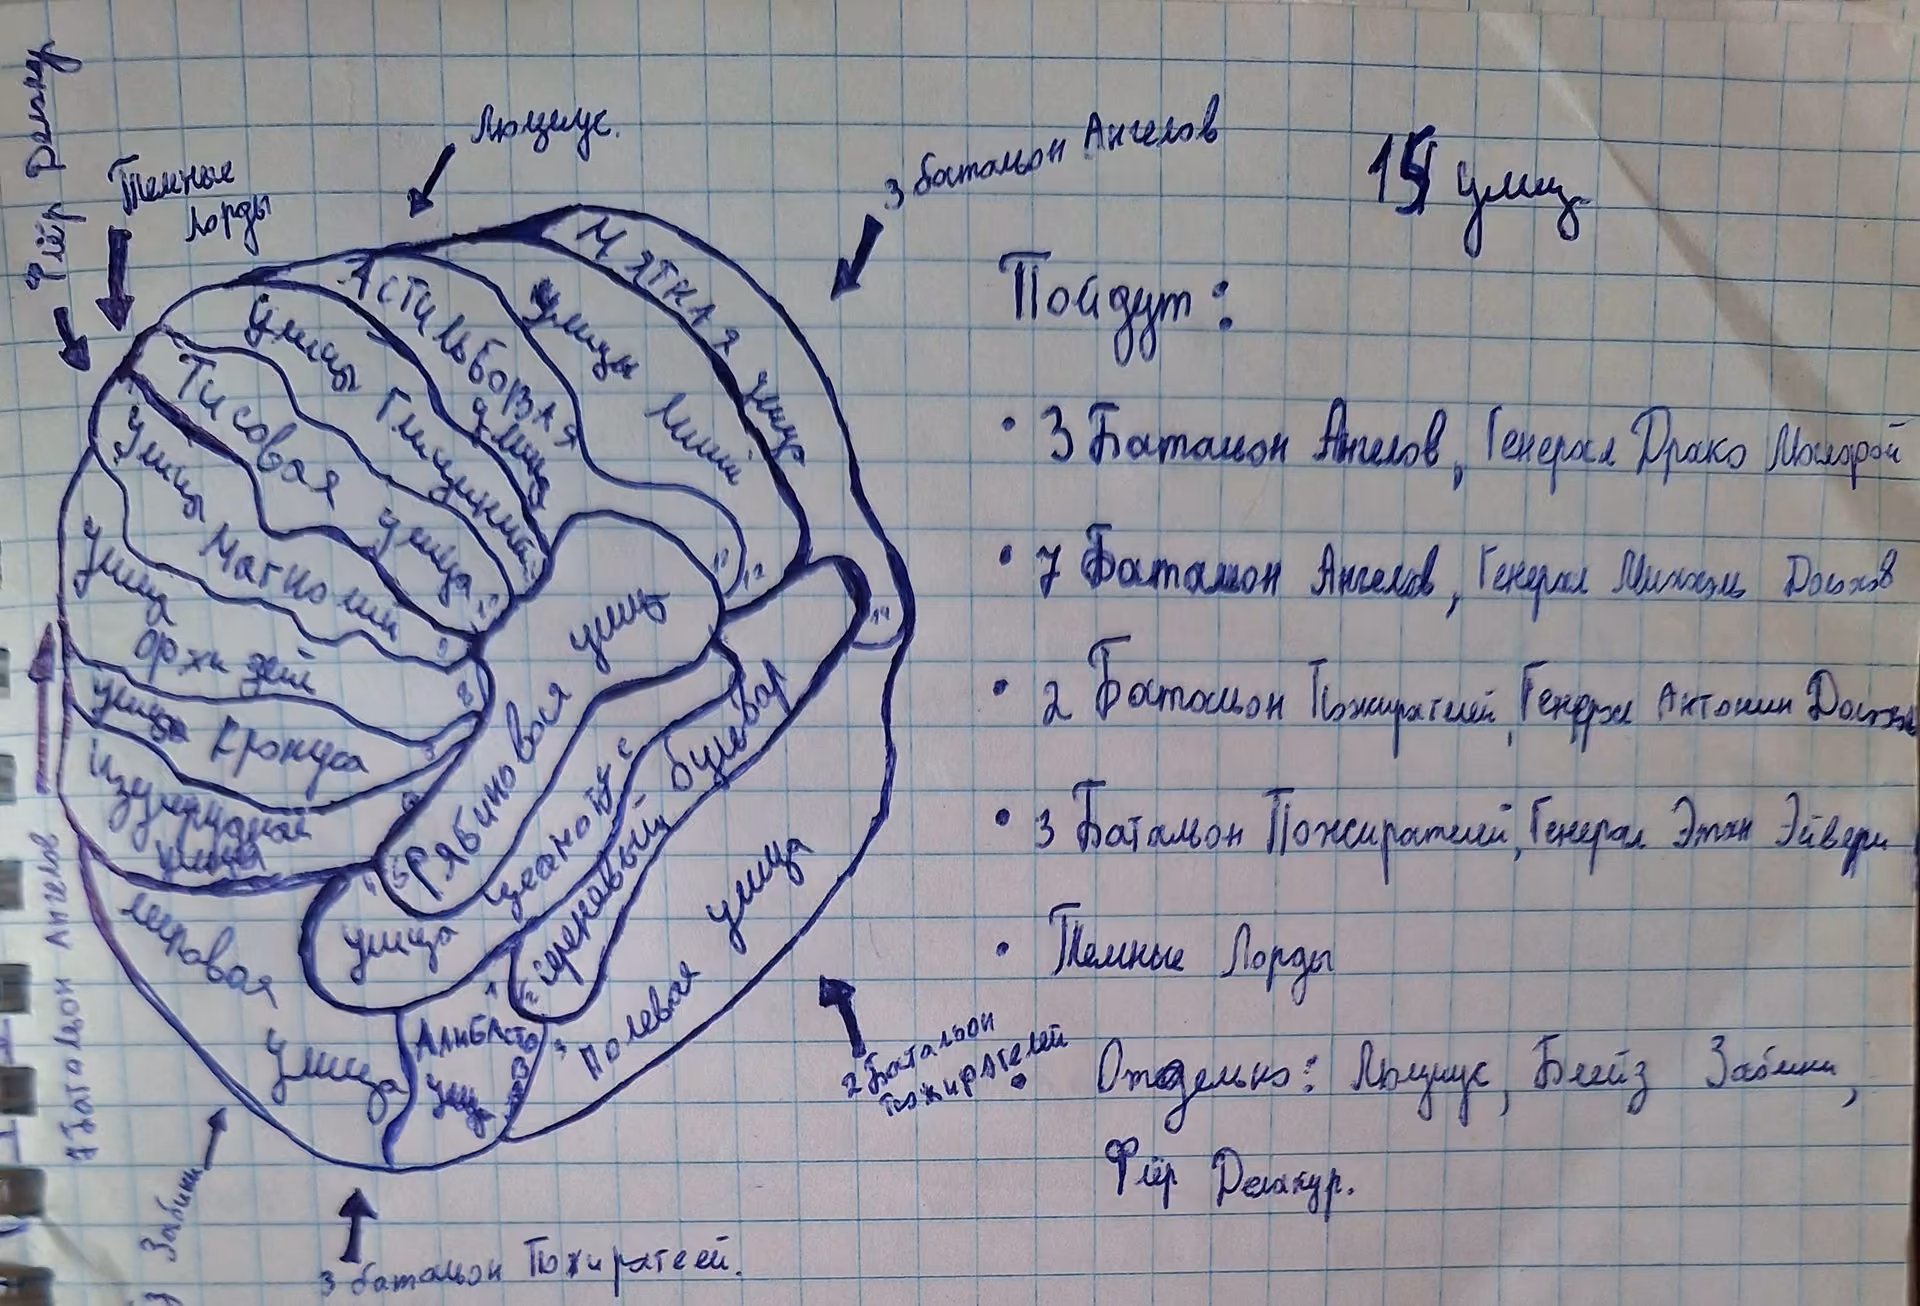 Флёр Делакур
Темные
Лорды
Люциус.
3 батальон Ангелов
15 улиц
Мятная улица
улица Лилий
Астильбовая
улица
улица Глициний
Тисовая улица
улица Магнолий
улица
орхидей
улица Крокуса
Изумрудная
улица
Рябиновая улица
улица цеанотус
Сиреневый бульвар
Полевая улица
улица
Алибастро
улица
7 Батальон Ангелов
Забини
3 батальон Пожирателей.
2 Батальон
пожирателей
Пойдут:
• 3 Батальон Ангелов, Генерал Драко Малфой
• 7 Батальон Ангелов, Генерал Михаэль Долохов
• 2 Батальон Пожирателей, Генерал Антонин Долохов
• 3 Батальон Пожирателей, Генерал Этан Эйвери
• Темные Лорды
• Отдельно: Люциус, Блейз Забини,
Флёр Делакур.